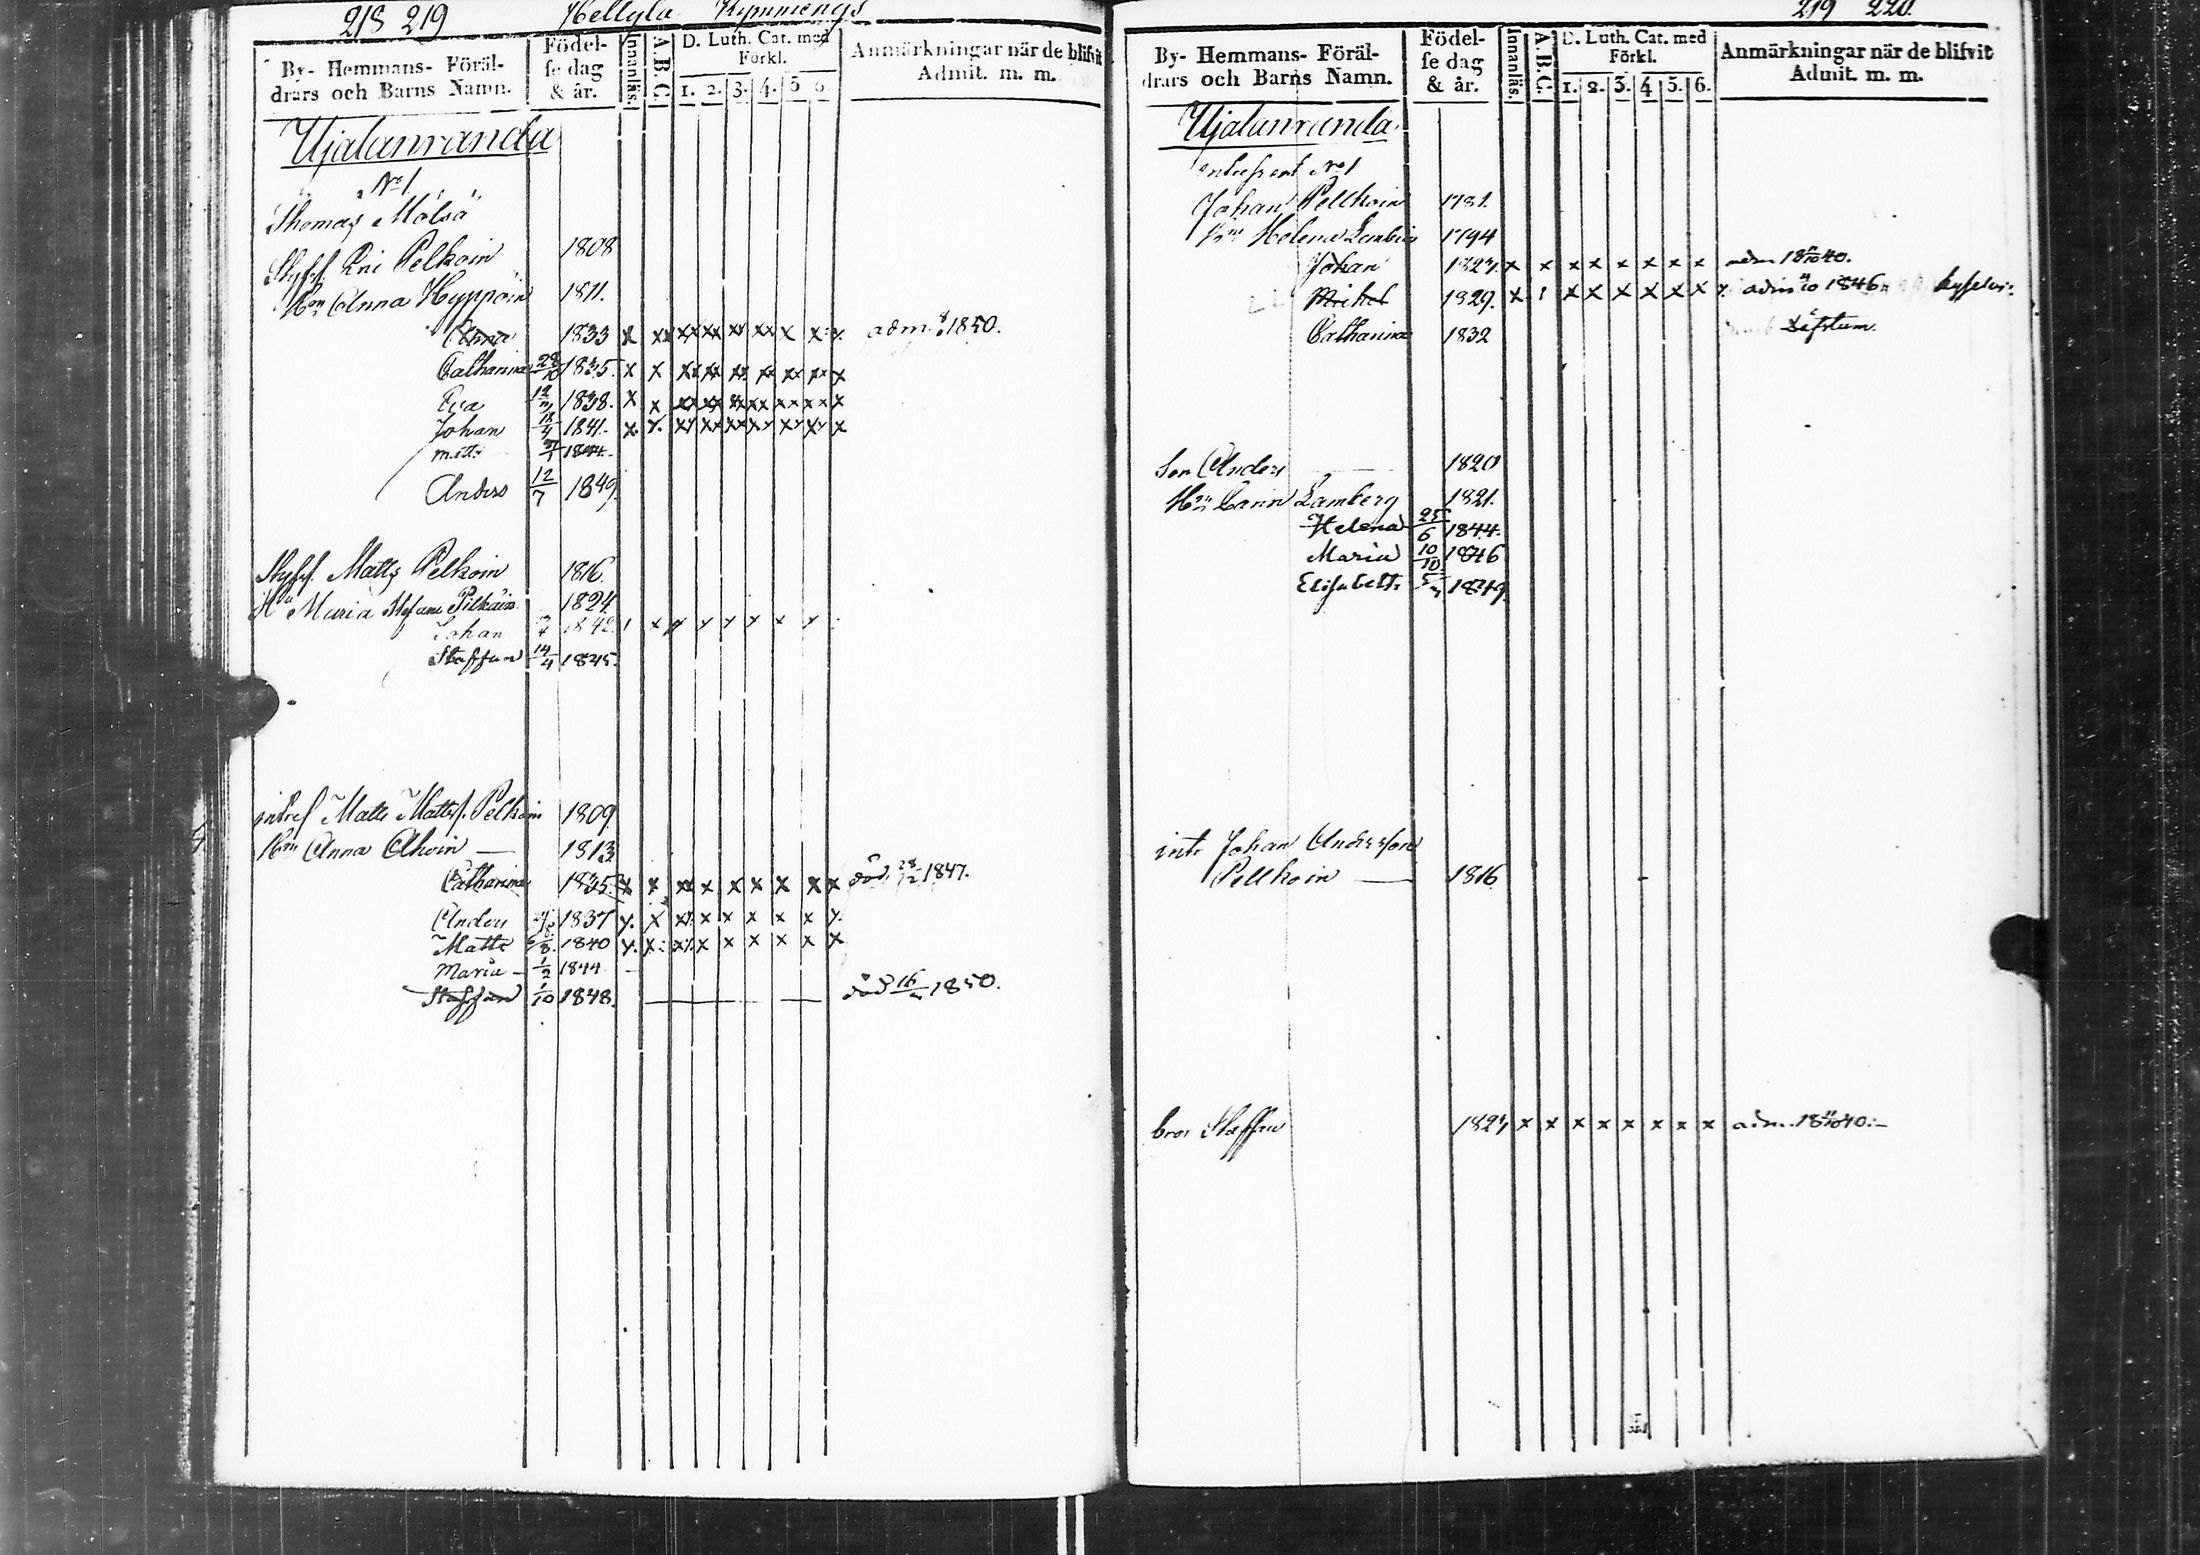 218 219 Hellylä Kymmenys
By- Hemmans- Föräl-
drars och Barns Namn.
Födel-
se dag
& år.
Innanläs.
A.B.C.
D. Luth. Cat. med
Förkl.
1. 2. 3. 4. 5 6.
Anmärkningar när de blifvit
Admit. m. m.
Ujalanranda
No 1
Thomas Mölsä
Styfs. Eric Pelkoin 1808
Hn Anna Hyppöin 1811.
Anna 1833 x xx xx xx xx xx x x x adm. 1850.
Catharina 28/10 1835. x x xx xx xx xx xx xx x
Eva 1838. x x xx xx xx xx xx xx x
Johan 1841. x x xx xx xx xx xx xx x
1844.
Anders 12/7 1849.
Styfs. Matts Pelkoin 1816.
Maria 1824
Johan 1842
Staffan 14/4 1845.
Matts Mattss. Pelkoin 1809
Hn Anna Ahoin 1813
Catharina 1835 x x xx x x x x x x död 1847.
Anders 1837 x x xx x x x x x x
Matts 1840 x x xx x x x x x x
Maria 1/2 1844
Staffan 1/10 1848. död 1850.
219 220.
By- Hemmans- Föräl-
drars och Barns Namn.
Födel-
se dag
& år.
Innanläs.
A.B.C.
D. Luth. Cat. med
Förkl.
1. 2. 3. 4 5. 6.
Anmärkningar när de blifvit
Admit. m. m.
Ujalanranda
No 1
Johan Pellkoin 1781.
Hn Helena 1794
Johan x x x x x x x x adm 1840.
Michel 1829. x x x x x x x adm 1846
Catharina 1832
Son Anders 1820
Hn Carin Lamberg 1821.
Helena 25/6 1844.
Maria 10/10 1846
Elisabeth 1849.
Johan Andersson
Pellkoin 1816
bror Staffan x x x x x x x x adm. 1840.